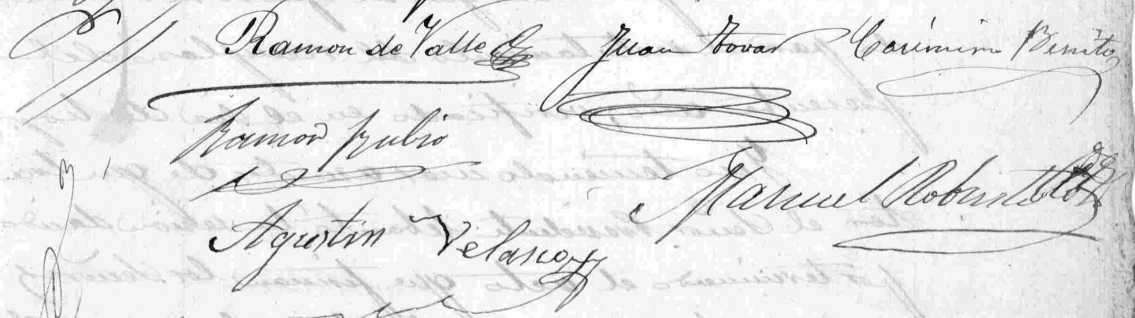 Ramon de Valle Juan Tovar Casimiro Benito
Ramon Rubio
Manuel
Agustin Velasco